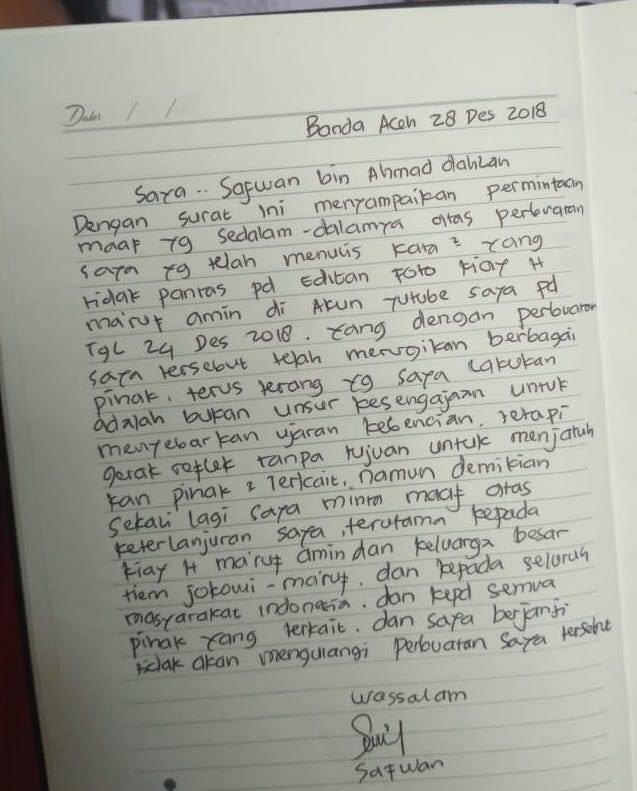 Date: / /
Banda Aceh 28 Des 2018
Saya .. Safwan bin Ahmad dahlan
Dengan surat ini menyampaikan permintaan
maaf yg sedalam-dalamya atas perbuatan
saya yg telah menulis kata² yang
tidak pantas pd Editan Foto kiay H
ma'ruf amin di Akun yutube saya pd
Tgl 24 Des 2018. yang dengan perbuatan
saya tersebut telah merugikan berbagai
pihak. terus terang yg saya lakukan
adalah bukan unsur kesengajaan untuk
menyebarkan ujaran kebencian. tetapi
gerak reflek tanpa tujuan untuk menjatuh
kan pihak² Terkait. namun demikian
sekali lagi saya minta maaf atas
keterlanjuran saya, terutama kepada
kiay H ma'ruf amin dan keluarga besar
tiem jokowi-ma'ruf. dan kepada seluruh
masyarakat indonesia. dan kepd semua
pihak yang terkait. dan saya berjanji
tidak akan mengulangi perbuatan saya tersebut
wassalam
Safwan